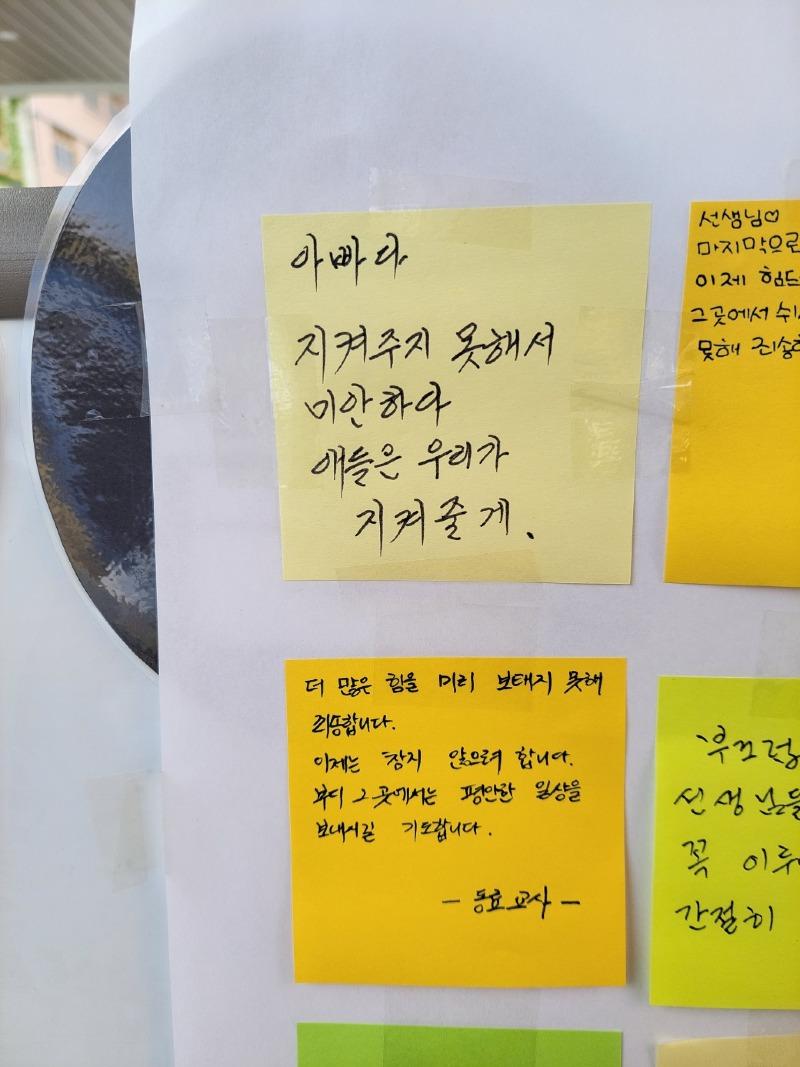 아빠다
지켜주지 못해서
미안하다
애들은 우리가
지켜줄게.
선생님♡
마지막으로
이제 힘드
그곳에서 쉬
못해 죄송
더 많은 힘을 미리 보태지 못해
죄송합니다.
이제는 참지 않으려 합니다.
부디 그 곳에서는 평안한 일상을
보내시길 기도합니다.
- 동료교사 -
부끄럽
선생님들
꼭 이루
간절히